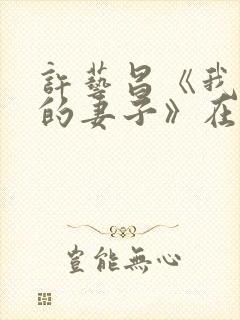 許藝昌《我
的妻子》在
豈能無心